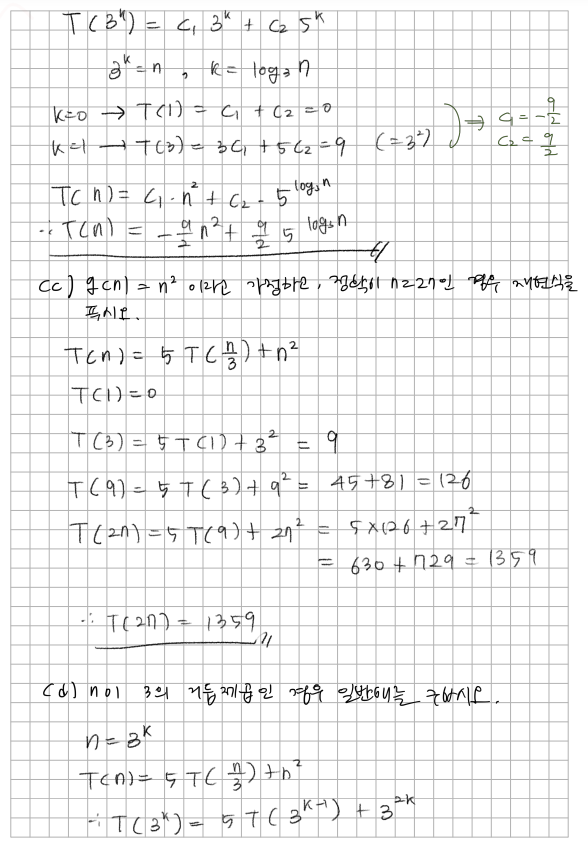 T(3^k) = c₁ 3^k + c₂ 5^k
3^k = n , k = log₃ n
k=0 → T(1) = c₁ + c₂ = 0
k=1 → T(3) = 3c₁ + 5c₂ = 9 (= 3²) ⇒ c₁ = -9/2 c₂ = 9/2
T(n) = c₁·n² + c₂·5^log₃n
∴ T(n) = -9/2 n² + 9/2 5^log₃n
(c) g(n) = n² 이라고 가정하고, 정확히 n=27인 경우 재현식을
푸시오.
T(n) = 5T(n/3) + n²
T(1) = 0
T(3) = 5T(1) + 3² = 9
T(9) = 5T(3) + 9² = 45+81 = 126
T(27) = 5T(9) + 27² = 5×126 + 27²
= 630 + 729 = 1359
∴ T(27) = 1359
(d) n이 3의 거듭제곱인 경우 일반해를 구하시오.
n = 3^k
T(n) = 5T(n/3) + n²
∴ T(3^k) = 5T(3^k-1) + 3^2k